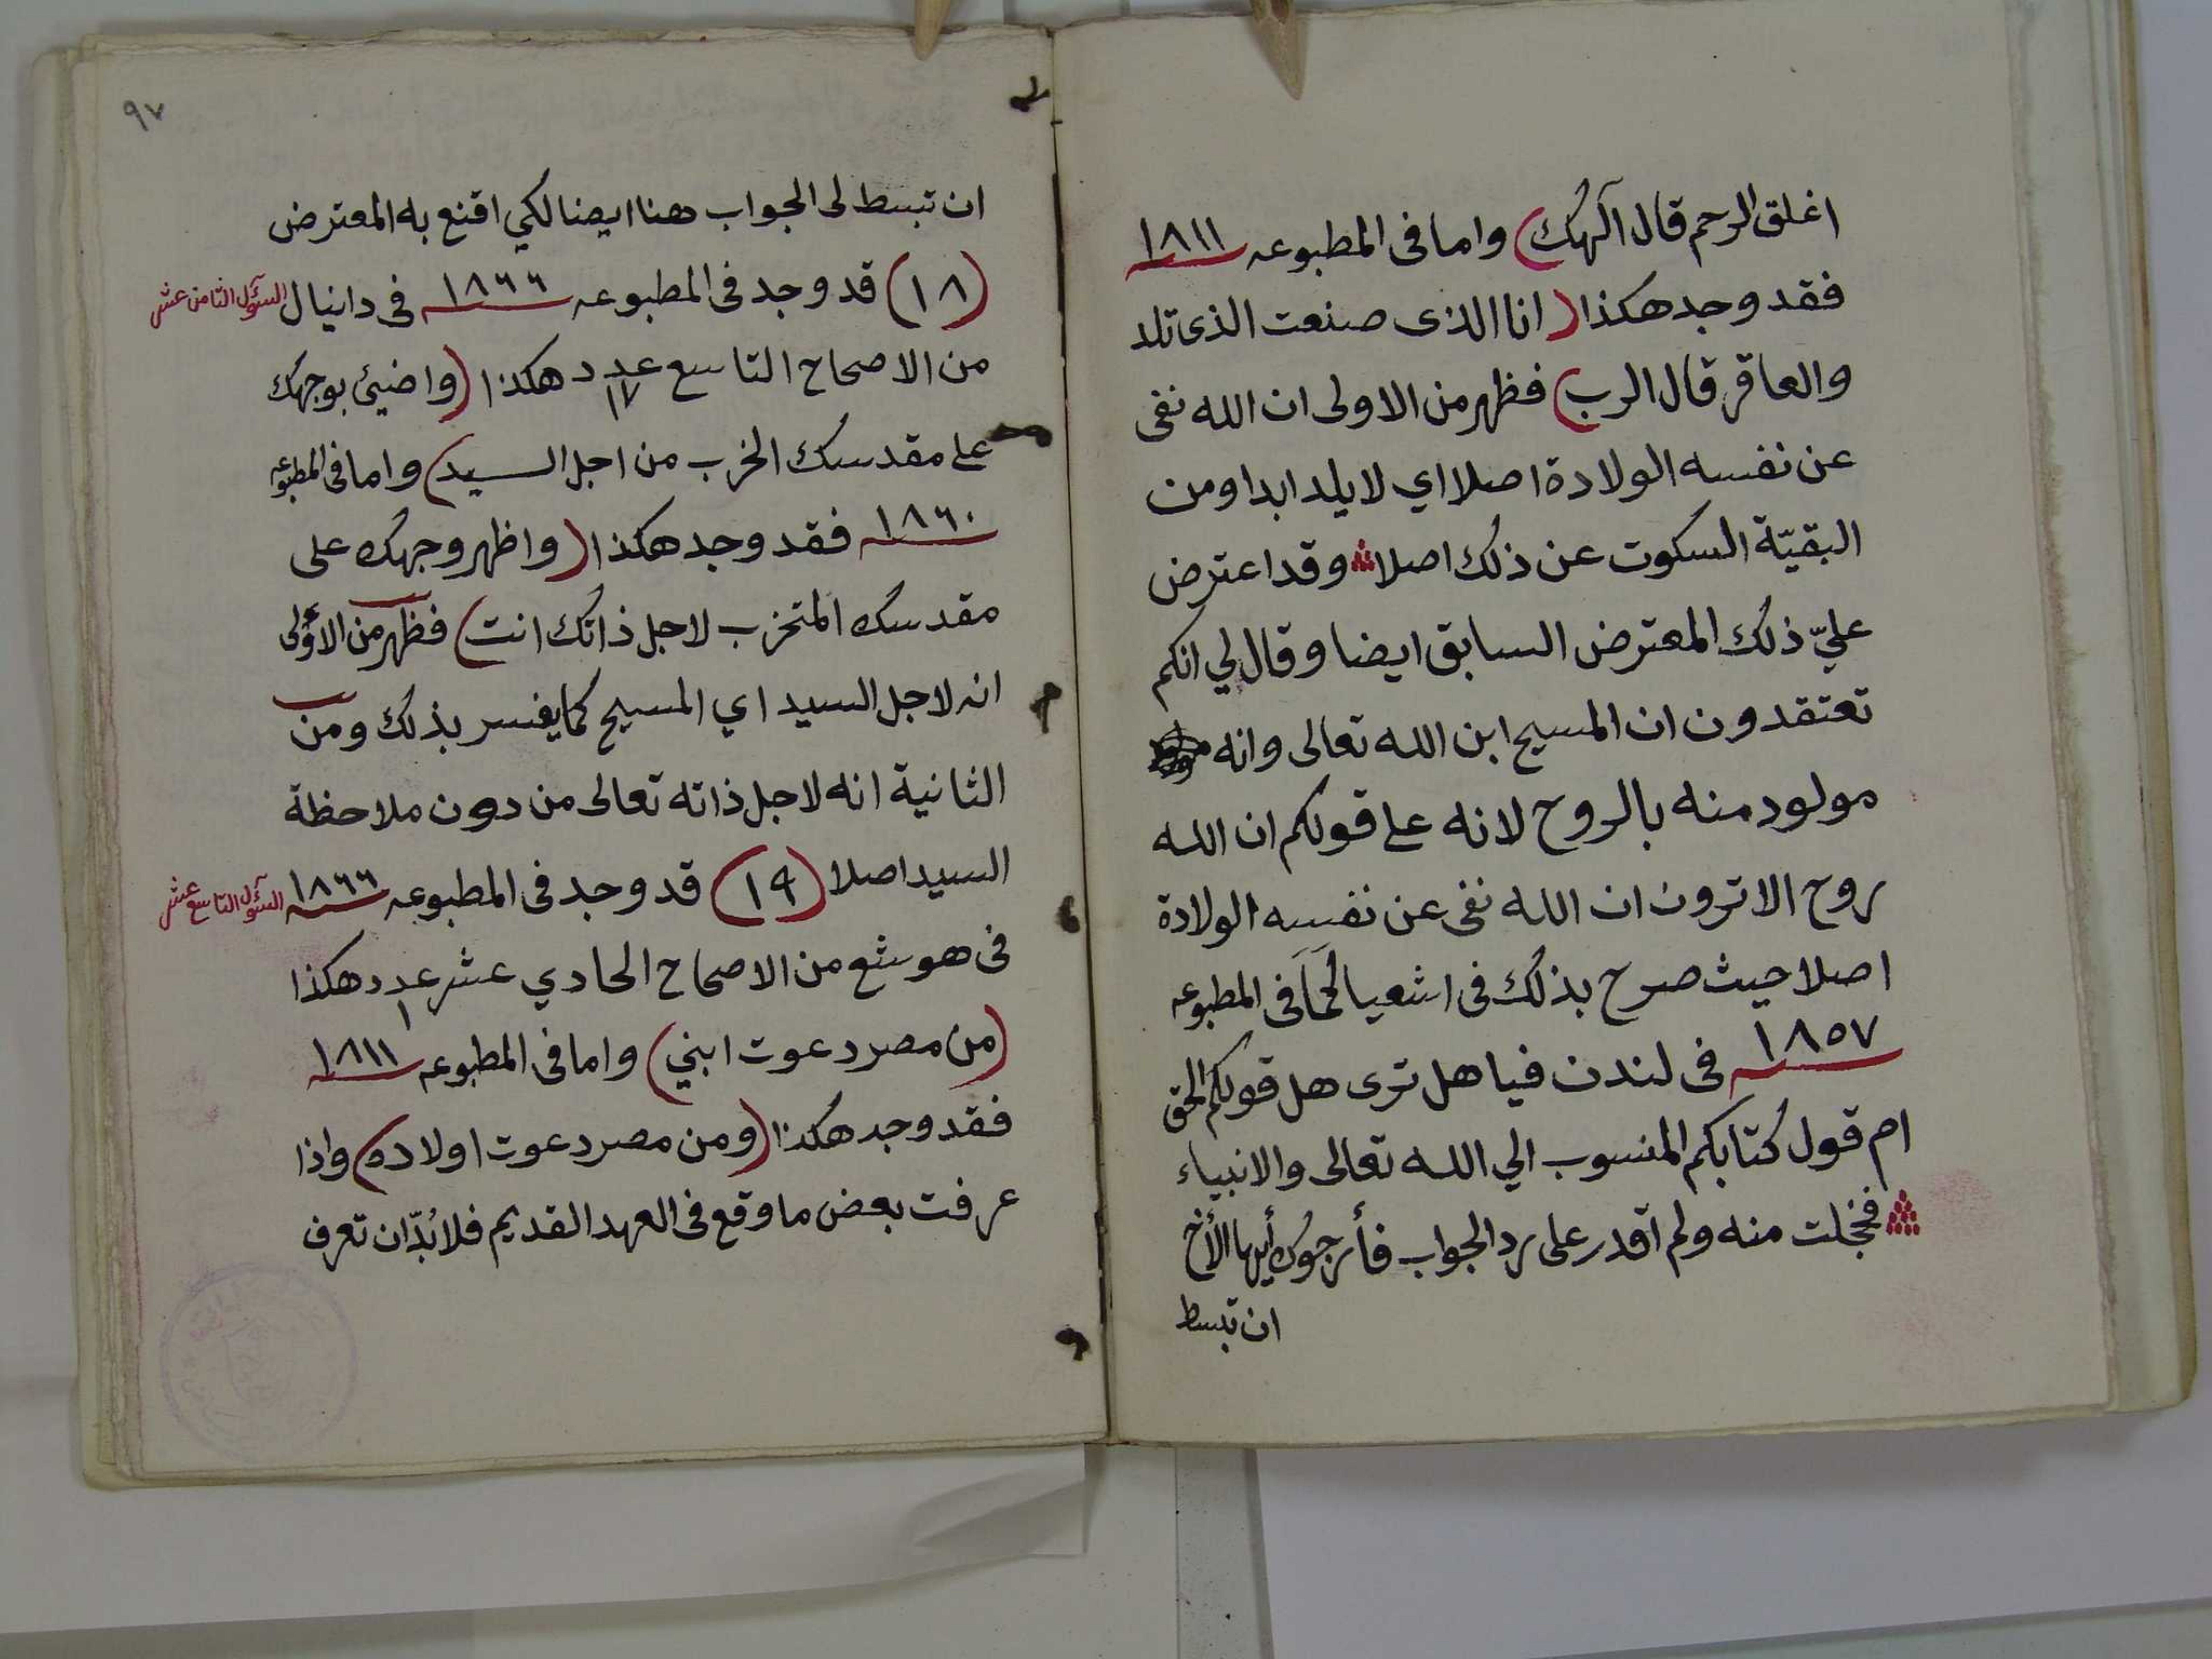 اغلق الرحم قال آلهك) واما فى المطبوعه ١٨١١
فقد وجد هكذا (انا الذى صنعت الذى تلد
والعاقر قال الرب) فظهر من الاولى ان الله نفى
عن نفسه الولادة اصلا اي لا يلد ابدا ومن
البقيّة السكوت عن ذلك اصلا وقد اعترض
عليّ ذلك المعترض السابق ايضا وقال لي انكم
تعتقدون ان المسيح ابن الله تعالى وانه
مولود منه بالروح لانه على قولكم ان الله
روح الا ترون ان الله نفى عن نفسه الولادة
اصلا حيث صرح بذلك فى اشعيا فى المطبوعه
١٨٥٧ فى لندن فيا هل ترى هل قولكم الحق
ام قول كُتابكم المنسوب الي الله تعالى والانبياء
فخجلت منه ولم اقدر على رد الجواب فأرجوك أيها الأخ
ان تبسط
٩٧
ان تبسط لى الجواب هنا ايضا لكي اقنع به المعترض
(١٨) قد وجد فى المطبوعه ١٨٦٦ فى دانيال
السؤل الثامن عشر
من الاصحاح التاسع عدد ١٧ هكذا (واضيئ بوجهك
على مقدسك الخرب من اجل السيد) واما فى المطبوعه
١٨٦٠ فقد وجد هكذا (واظهر وجهك على
مقدسك المتخرب لاجل ذاتك انت) فظهر من الاؤلى
انه لاجل السيد اي المسيح كما يفسر بذلك ومن
الثانية انه لاجل ذاته تعالى من دون ملاحظة
السيد اصلا (١٩) قد وجد فى المطبوعه ١٨٦٦
السؤل التاسع عشر
فى هوشع من الاصحاح الحادي عشر عدد ١ هكذا
(من مصر دعوت ابني) واما فى المطبوعه ١٨١١
فقد وجد هكذا (ومن مصر دعوت اولاده) واذا
عرفت بعض ما وقع فى العهد القديم فلا بُدّ ان تعرف